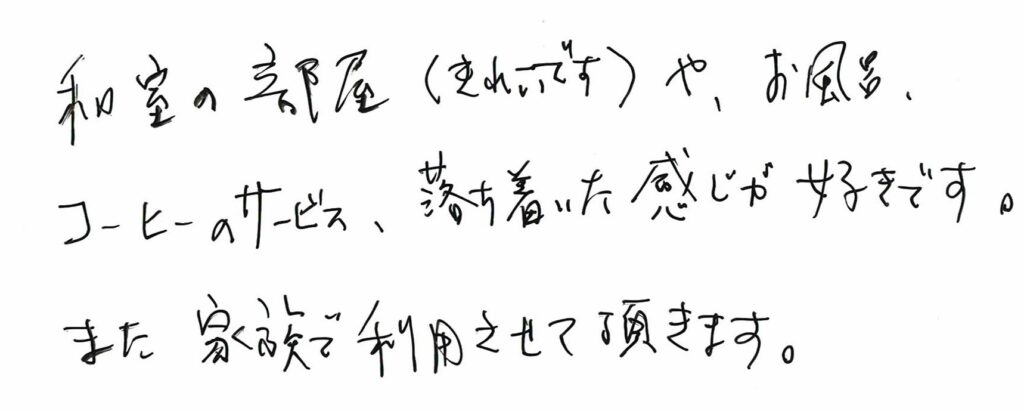 和室の部屋(きれいです)や、お風呂、
コーヒーのサービス、落ち着いた感じが好きです。
また家族で利用させて頂きます。